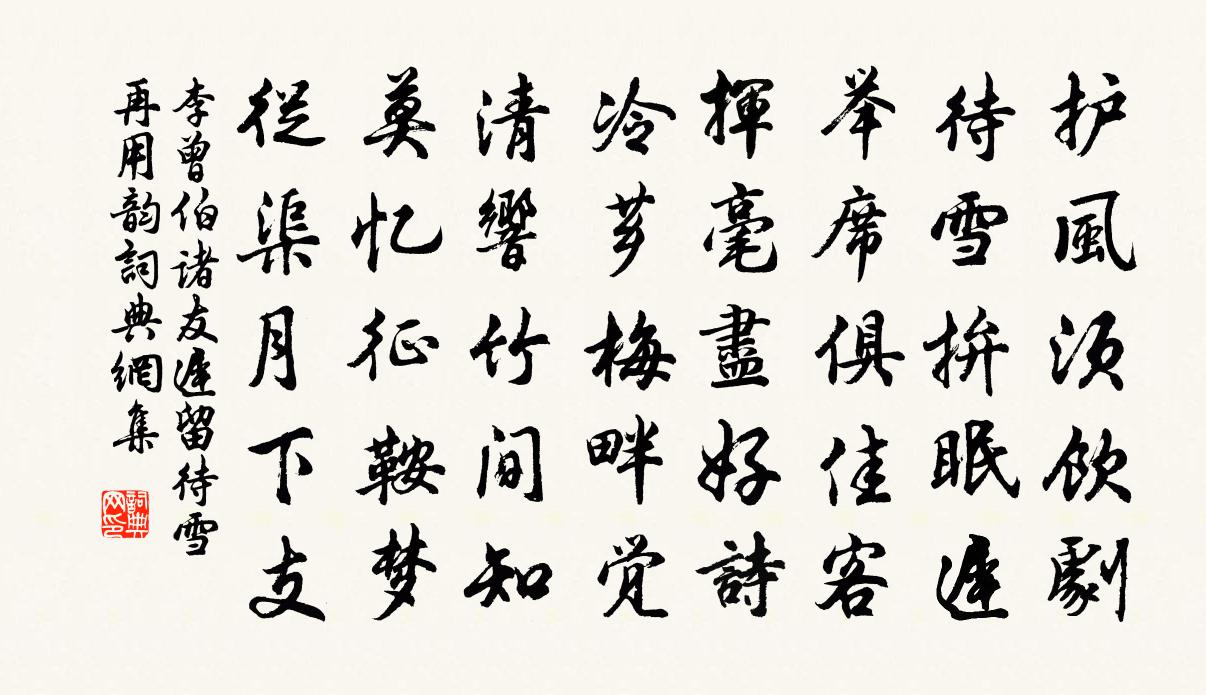 护風须飲劇
待雪拚眠遲
举席俱佳客
揮毫盡好詩
冷芗梅畔觉
清響竹间知
莫忆征鞍梦
從渠月下支
李曾伯诸友遲留待雪
再用韵詞典網集
詞典
网印